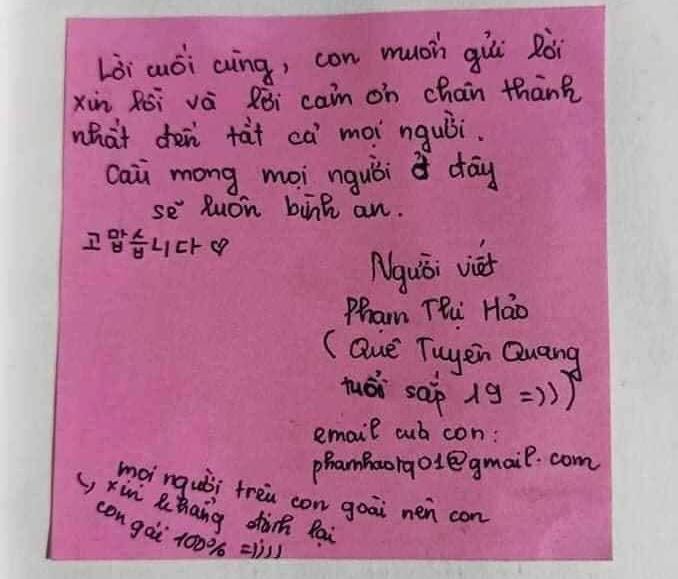 Lời cuối cùng, con muốn gửi lời
xin lỗi và lời cảm ơn chân thành
nhất đến tất cả mọi người.
Cầu mong mọi người ở đây
sẽ luôn bình an.
고맙습니다 ♡
Người viết
Phạm Thị Hảo
(Quê Tuyên Quang
tuổi sắp 19 =)))
email của con:
@gmail.com
mọi người trêu con goài nên con
↳ xin khẳng định lại
con gái 100% =))))